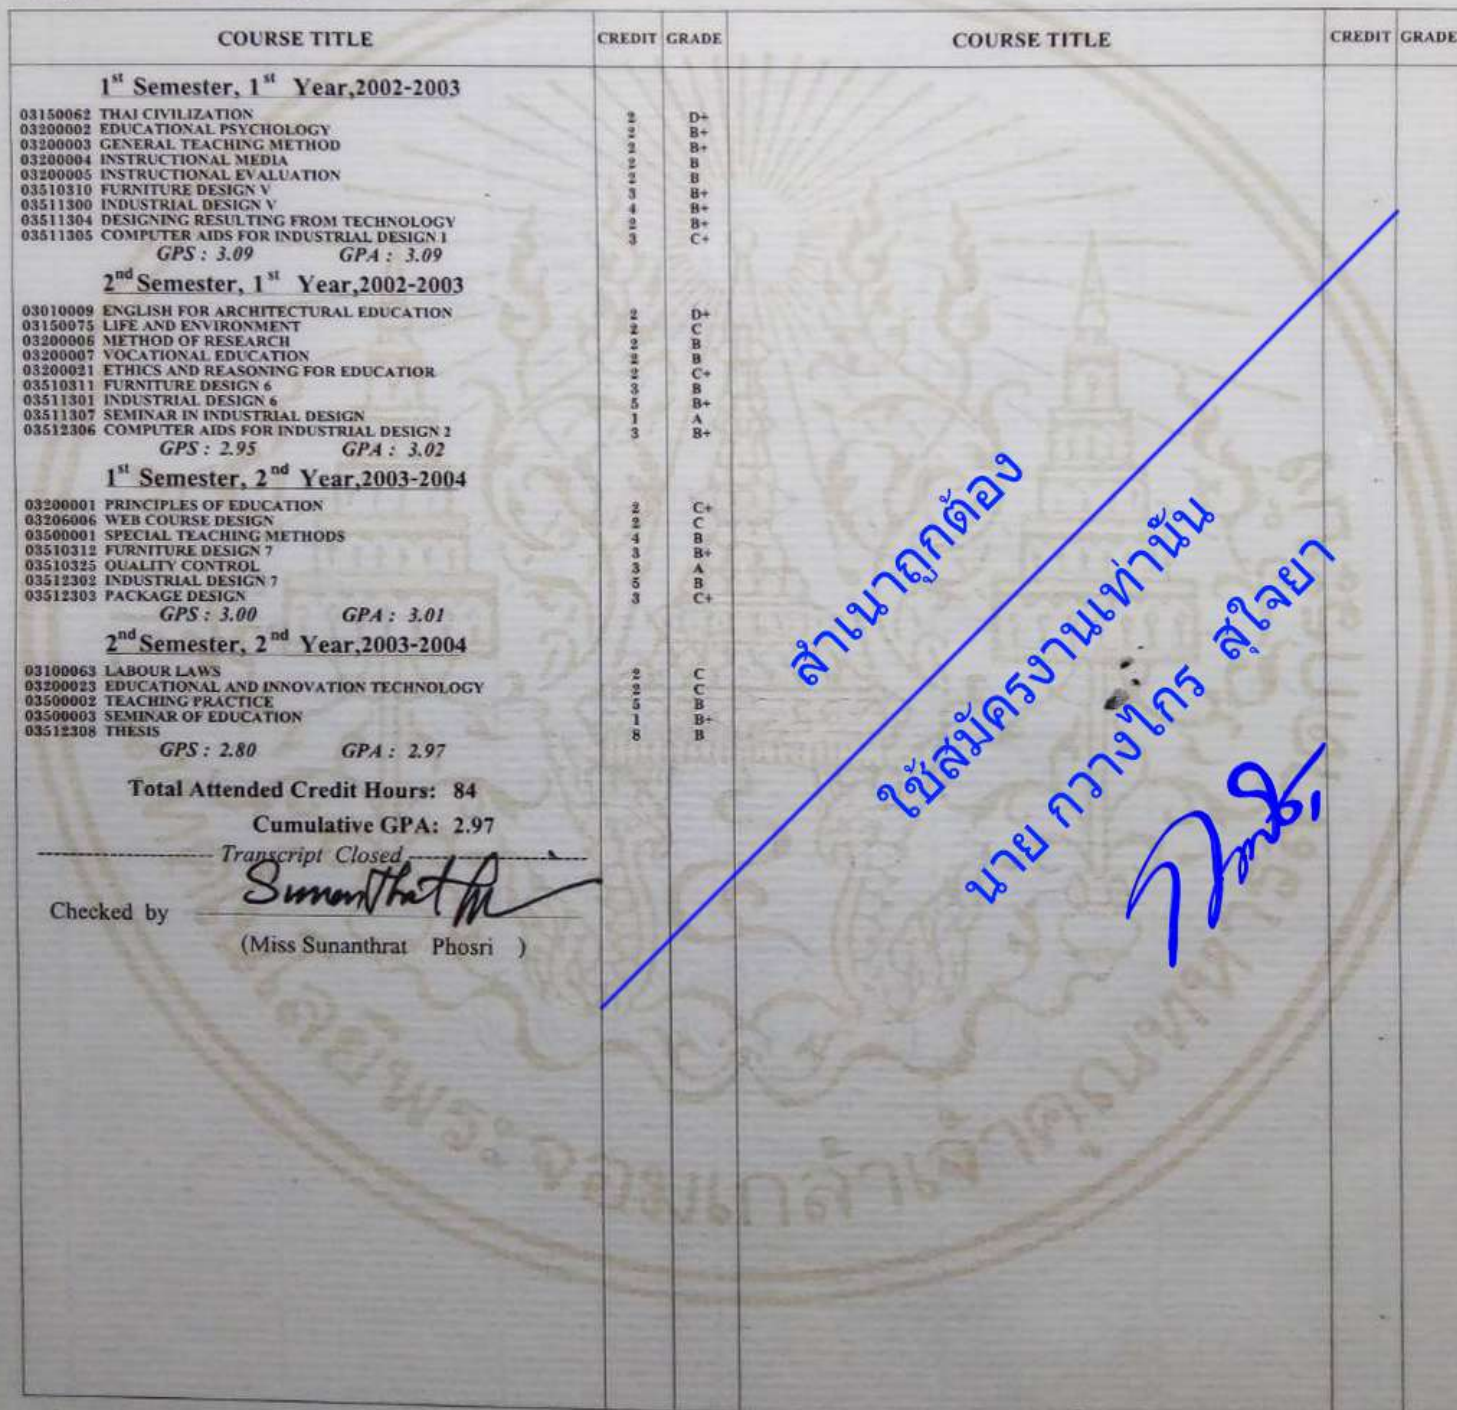 COURSE TITLE CREDIT GRADE COURSE TITLE CREDIT GRADE
1st Semester, 1st Year,2002-2003
03150062 THAI CIVILIZATION 2 D+
03200002 EDUCATIONAL PSYCHOLOGY 2 B+
03200003 GENERAL TEACHING METHOD 2 B+
03200004 INSTRUCTIONAL MEDIA 2 B
03200005 INSTRUCTIONAL EVALUATION 2 B
03510310 FURNITURE DESIGN V 3 B+
03511300 INDUSTRIAL DESIGN V 4 B+
03511304 DESIGNING RESULTING FROM TECHNOLOGY 2 B+
03511305 COMPUTER AIDS FOR INDUSTRIAL DESIGN 1 3 C+
GPS : 3.09 GPA : 3.09
2nd Semester, 1st Year,2002-2003
03010009 ENGLISH FOR ARCHITECTURAL EDUCATION 2 D+
03150075 LIFE AND ENVIRONMENT 2 C
03200006 METHOD OF RESEARCH 2 B
03200007 VOCATIONAL EDUCATION 2 B
03200021 ETHICS AND REASONING FOR EDUCATIOR 2 C+
03510311 FURNITURE DESIGN 6 3 B
03511301 INDUSTRIAL DESIGN 6 5 B+
03511307 SEMINAR IN INDUSTRIAL DESIGN 1 A
03512306 COMPUTER AIDS FOR INDUSTRIAL DESIGN 2 3 B+
GPS : 2.95 GPA : 3.02
1st Semester, 2nd Year,2003-2004
03200001 PRINCIPLES OF EDUCATION 2 C+
03206006 WEB COURSE DESIGN 2 C
03500001 SPECIAL TEACHING METHODS 4 B
03510312 FURNITURE DESIGN 7 3 B+
03510325 QUALITY CONTROL 3 A
03512302 INDUSTRIAL DESIGN 7 5 B
03512303 PACKAGE DESIGN 3 C+
GPS : 3.00 GPA : 3.01
2nd Semester, 2nd Year,2003-2004
03100063 LABOUR LAWS 2 C
03200023 EDUCATIONAL AND INNOVATION TECHNOLOGY 2 C
03500002 TEACHING PRACTICE 5 B
03500003 SEMINAR OF EDUCATION 1 B+
03512308 THESIS 8 B
GPS : 2.80 GPA : 2.97
Total Attended Credit Hours: 84
Cumulative GPA: 2.97
Transcript Closed
Checked by
(Miss Sunanthrat Phosri )
สำเนาถูกต้อง
ใช้สมัครงานเท่านั้น
นาย กวางไกร สุใจยา